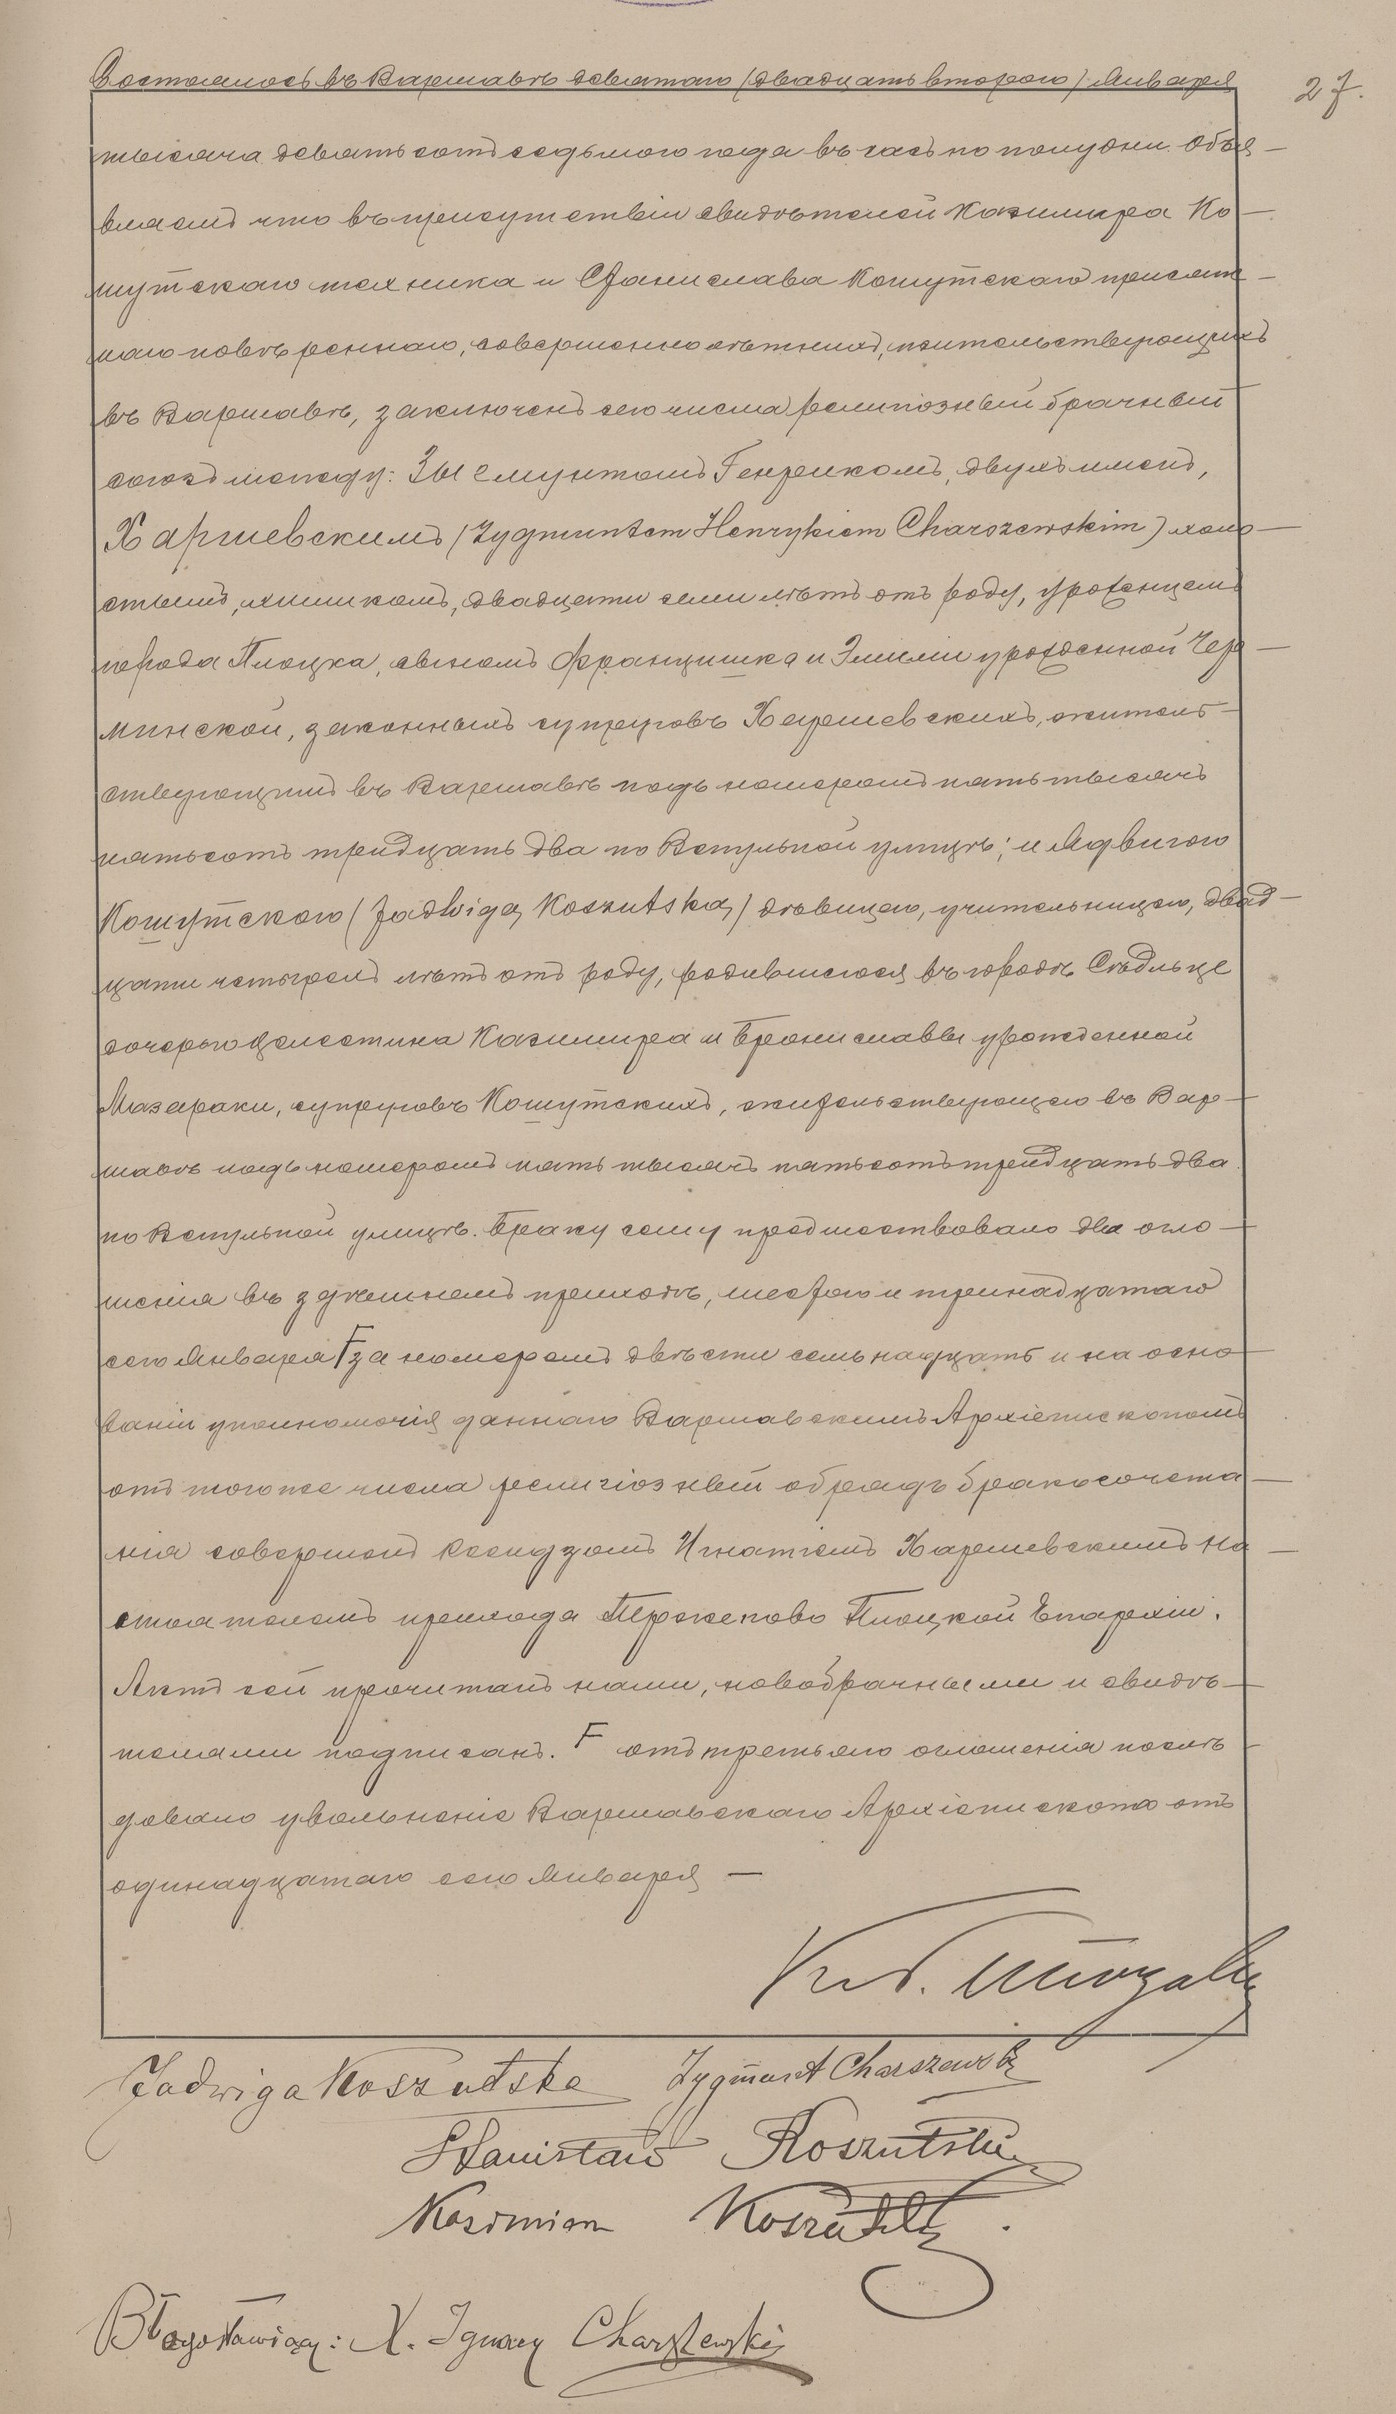 Состоялось въ Варшавѣ девятаго (двадцать втораго) Января
27.
тысяча девятьсотъ седьмого года въ часъ по полудни. Объя–
вляемъ что въ присутствіи свидѣтелей Казимира Ко–
шутскаго техника и Станислава Кошутскаго присяж–
наго повѣреннаго, совершеннолѣтнихъ, жительствующихъ
въ Варшавѣ, заключенъ сего числа религіозный брачный
союзъ между: Зыгмунтомъ Генрикомъ, двухъ именъ,
Харшевскимъ (Zygmuntem Henrykiem Charszewskim) холо–
стымъ, химикомъ, двадцати семи лѣтъ отъ роду, уроженцемъ
города Плоцка, сыномъ Францишка и Эмиліи урожденной Чер–
минской, законныхъ супруговъ Харшевскихъ, житель–
ствующимъ въ Варшавѣ подъ номеромъ пять тысячъ
пятьсотъ тридцать два по Вспульной улицѣ; и Ядвигою
Кошутскою (Jadwigą Koszutską) дѣвицею, учительницею, двад–
цати четырехъ лѣтъ отъ роду, родившеюся въ городѣ Сѣдльце
дочерью Целестина Казимира и Брониславы урожденной
Мазараки, супруговъ Кошутскихъ, жительствующею въ Вар–
шавѣ подъ номеромъ пять тысячъ пятьсотъ тридцать два
по Вспульной улицѣ. Браку сему предшествовало два огло–
шенія въ здѣшнемъ приходѣ, шестого и тринадцатаго
сего Января Г за номеромъ двѣсти семьнадцать и на осно–
ваніи уполномочія даннаго Варшавскимъ Архіепископомъ
отъ того же числа религіозный обрядъ бракосочета–
нія совершенъ Ксендзомъ Игнатіемъ Харшевскимъ на–
стоятелемъ прихода Тржепово Плоцкой Епархіи.
Актъ сей прочитанъ нами, новобрачными и свидѣ–
телями подписанъ. Г отъ третьяго оглашенія послѣ–
довало увольненіе Варшавскаго Архіепископа отъ
одинадцатаго сего Января —
Jadwiga Koszutska Zygmunt Charszewski
Stanisław Koszutski
Kazimierz Koszutski.
Błogosławiący: X. Ignacy Charszewski